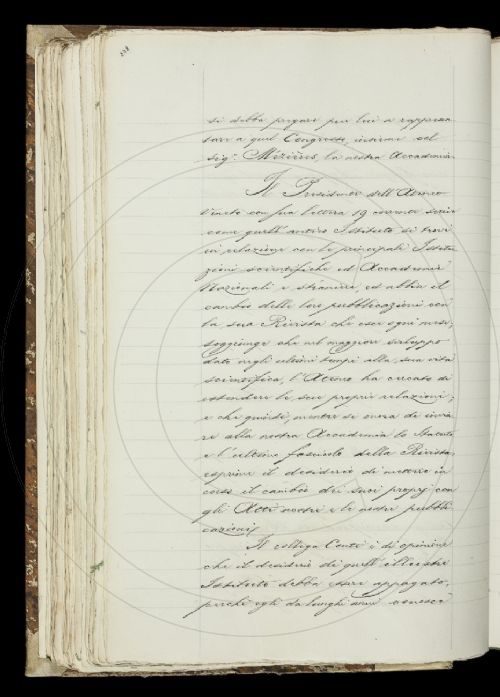 si debba pregare per lui a rappresen
tare a quel Congresso, insieme col
sig.r Mézières, la nostra Accademia.
Il Presidente dell'Ateneo
Veneto con sua lettera 19 corrente scrive
come quell'antico Istituto si trovi
in relazione con le principali Istitu
zioni scientifiche ed Accademie
Nazionali e straniere, ed abbia il
cambio delle loro pubblicazioni con
la sua Rivista che esce ogni mese;
soggiunge che nel maggiore sviluppo
dato negli ultimi tempi alla sua vita
scientifica, l'Ateneo ha cercato di
estendere le sue proprie relazioni;
e che quindi, mentre si onora di invia
re alla nostra Accademia lo Statuto
e l'ultimo fascicolo della Rivista,
esprime il desiderio di mettere in
corso il cambio dei suoi propri con
gli Atti nostri e le nostre pubbli
cazioni.
Il collega Conti è di opinione
che il desiderio di quell'illustre
Istituto debba esser appagato,
perchè egli da lunghi anni conosce